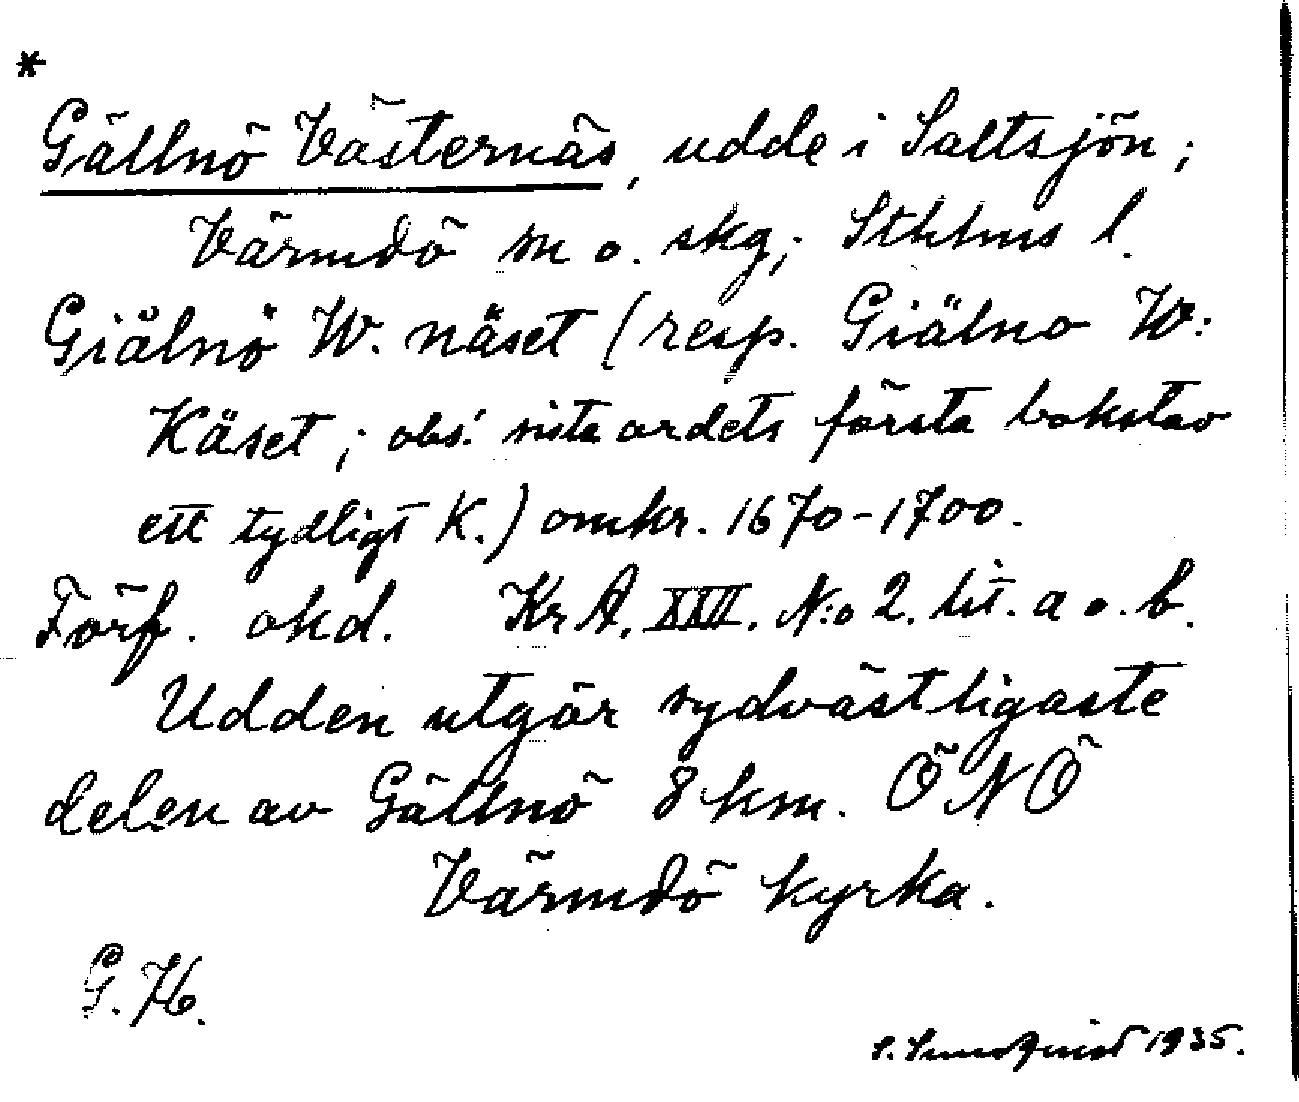 *
Gällnö Västernäs, udde i Saltsjön;
Värmdö sn o. skg; Sthlms l.
Giälnö W. näset (resp. Giälno W:
Käset; obs! sista ordets första bokstav
ett tydligt K.) omkr. 1670-1700.
Förf. okd. KrA. XXII. N:o 2. lit. a o. b.
Udden utgör sydvästligaste
delen av Gällnö 8 km. ÖNÖ
Värmdö kyrka.
G. 76.
S. Sundquist 1935.